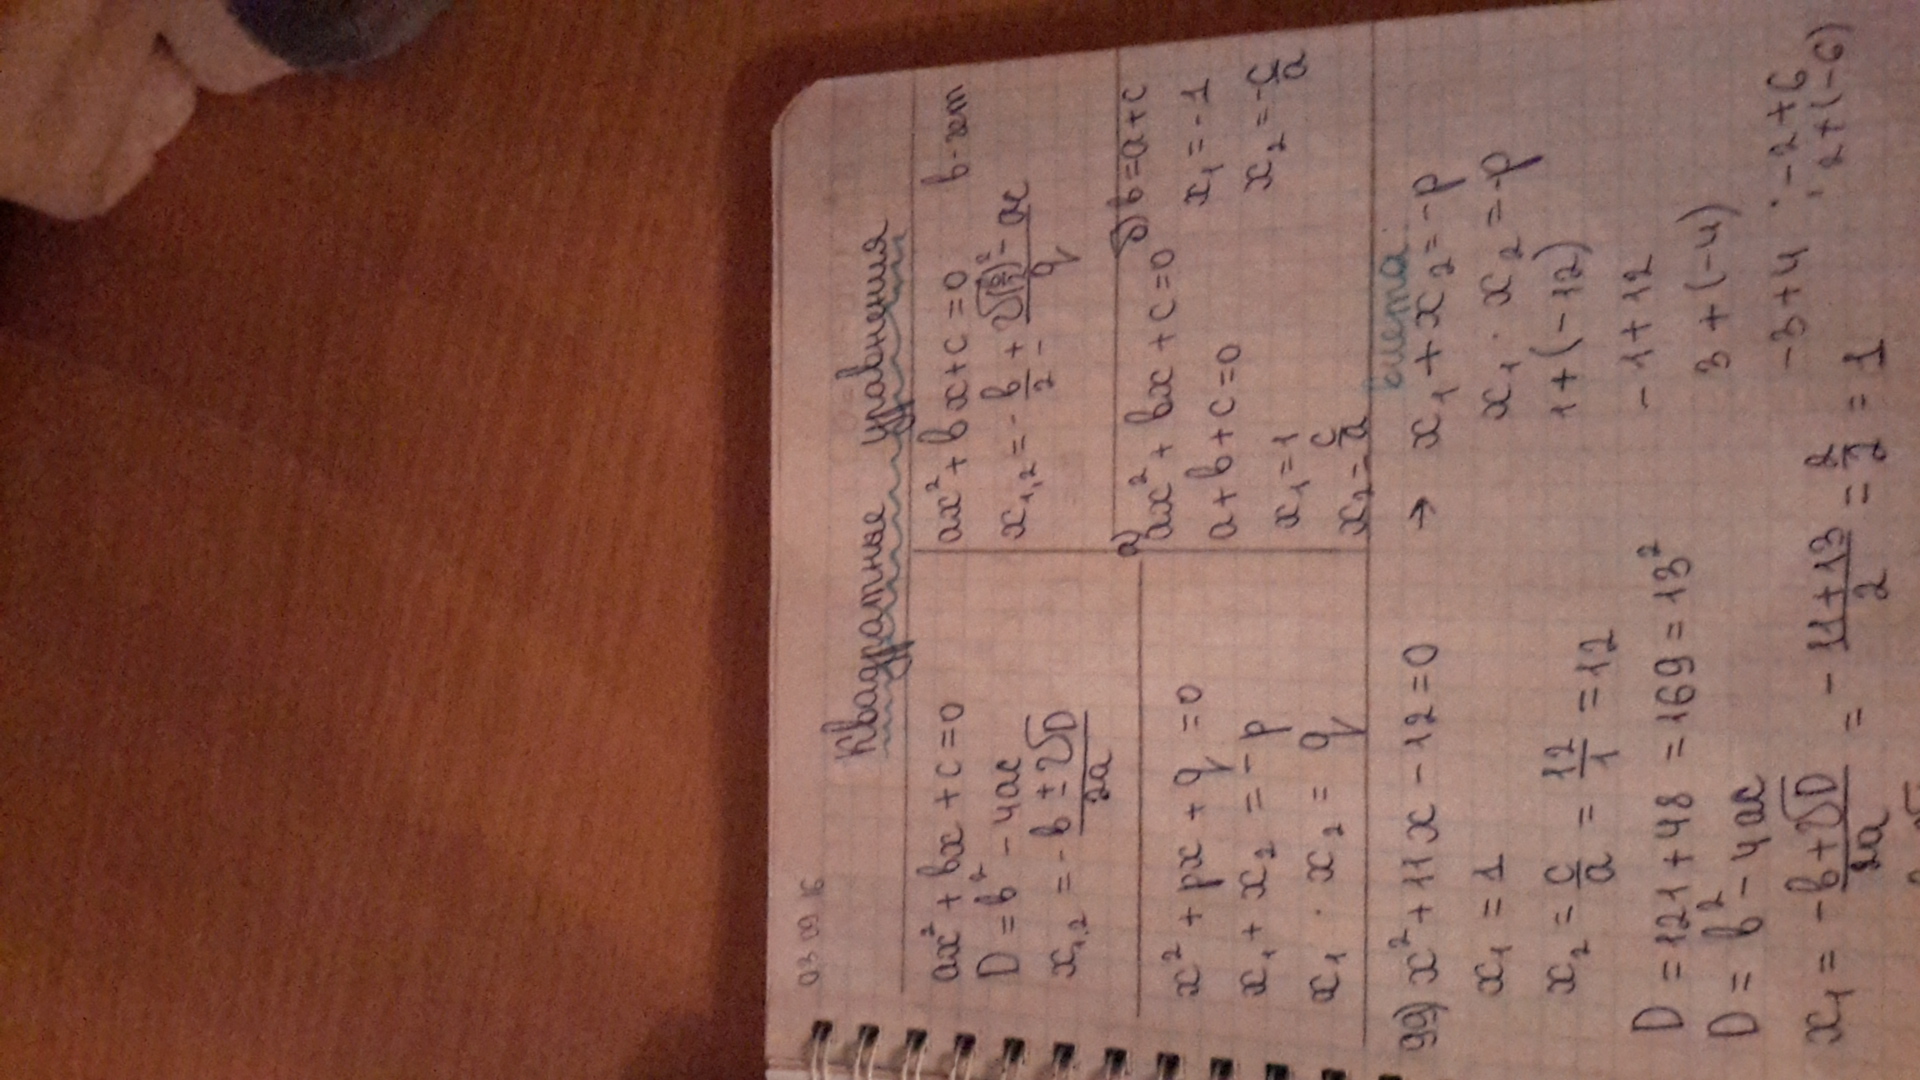 03 09 16
Квадратные уравнения
ax² + bx + c = 0
D = b² - 4ac
x₁,₂ = -b ± ²√D / 2a
ax² + bx + c = 0 b-чет
x₁,₂ = - b/2 ± ²√(b/2)² - ac / a
x² + px + q = 0
x₁ + x₂ = -p
x₁ · x₂ = q
а) ax² + bx + c = 0
a + b + c = 0
x₁ = 1
x₂ = c/a
б) b = a + c
x₁ = -1
x₂ = - c/a
99) x² + 11x - 12 = 0
x₁ = 1
x₂ = c/a = 12/1 = 12
D = 121 + 48 = 169 = 13²
D = b² - 4ac
x₁ = -b + ²√D / 2a = - 11 + 13 / 2 = 2/2 = 1
виета
→ x₁ + x₂ = -p
x₁ · x₂ = -p
1 + (-12)
- 1 + 12
3 + (-4)
-3 + 4 ; -2 + 6
; 2 + (-6)